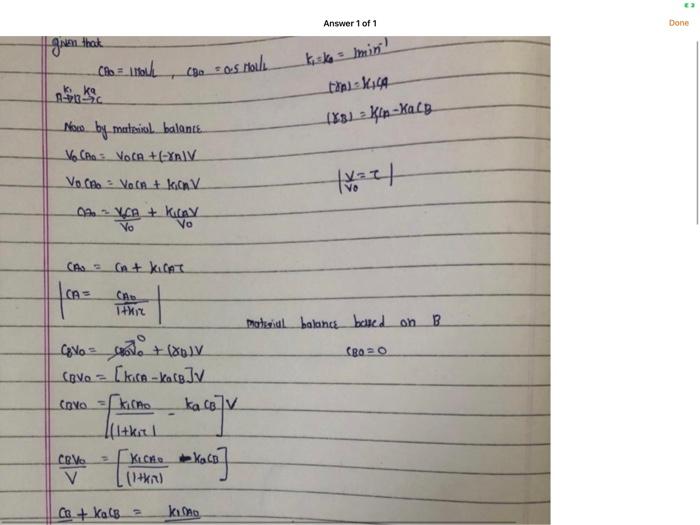 Answer 1 of 1
Done
given that
CA0 = 1 mol/L , CB0 = 0.5 mol/L k1=k2 = 1min⁻¹
A k1→ B k2→ C (-rA) = k1CA
(rB) = k1CA - k2CB
Now by material balance
V0CA0 = V0CA + (-rA)V
V0CA0 = V0CA + k1CAV |V/V0 = τ|
CA0 = V0CA/V0 + k1CAV/V0
CA0 = CA + k1CAτ
|CA = CA0/1+k1τ|
material balance based on B
CBV0 = CB0V0→0 + (rB)V CB0=0
CBV0 = [k1CA - k2CB]V
CBV0 = [k1CA0/(1+k1τ) - k2CB]V
CBV0/V = [k1CA0/(1+k1τ) - k2CB]
CB + k2CB = k1CA0